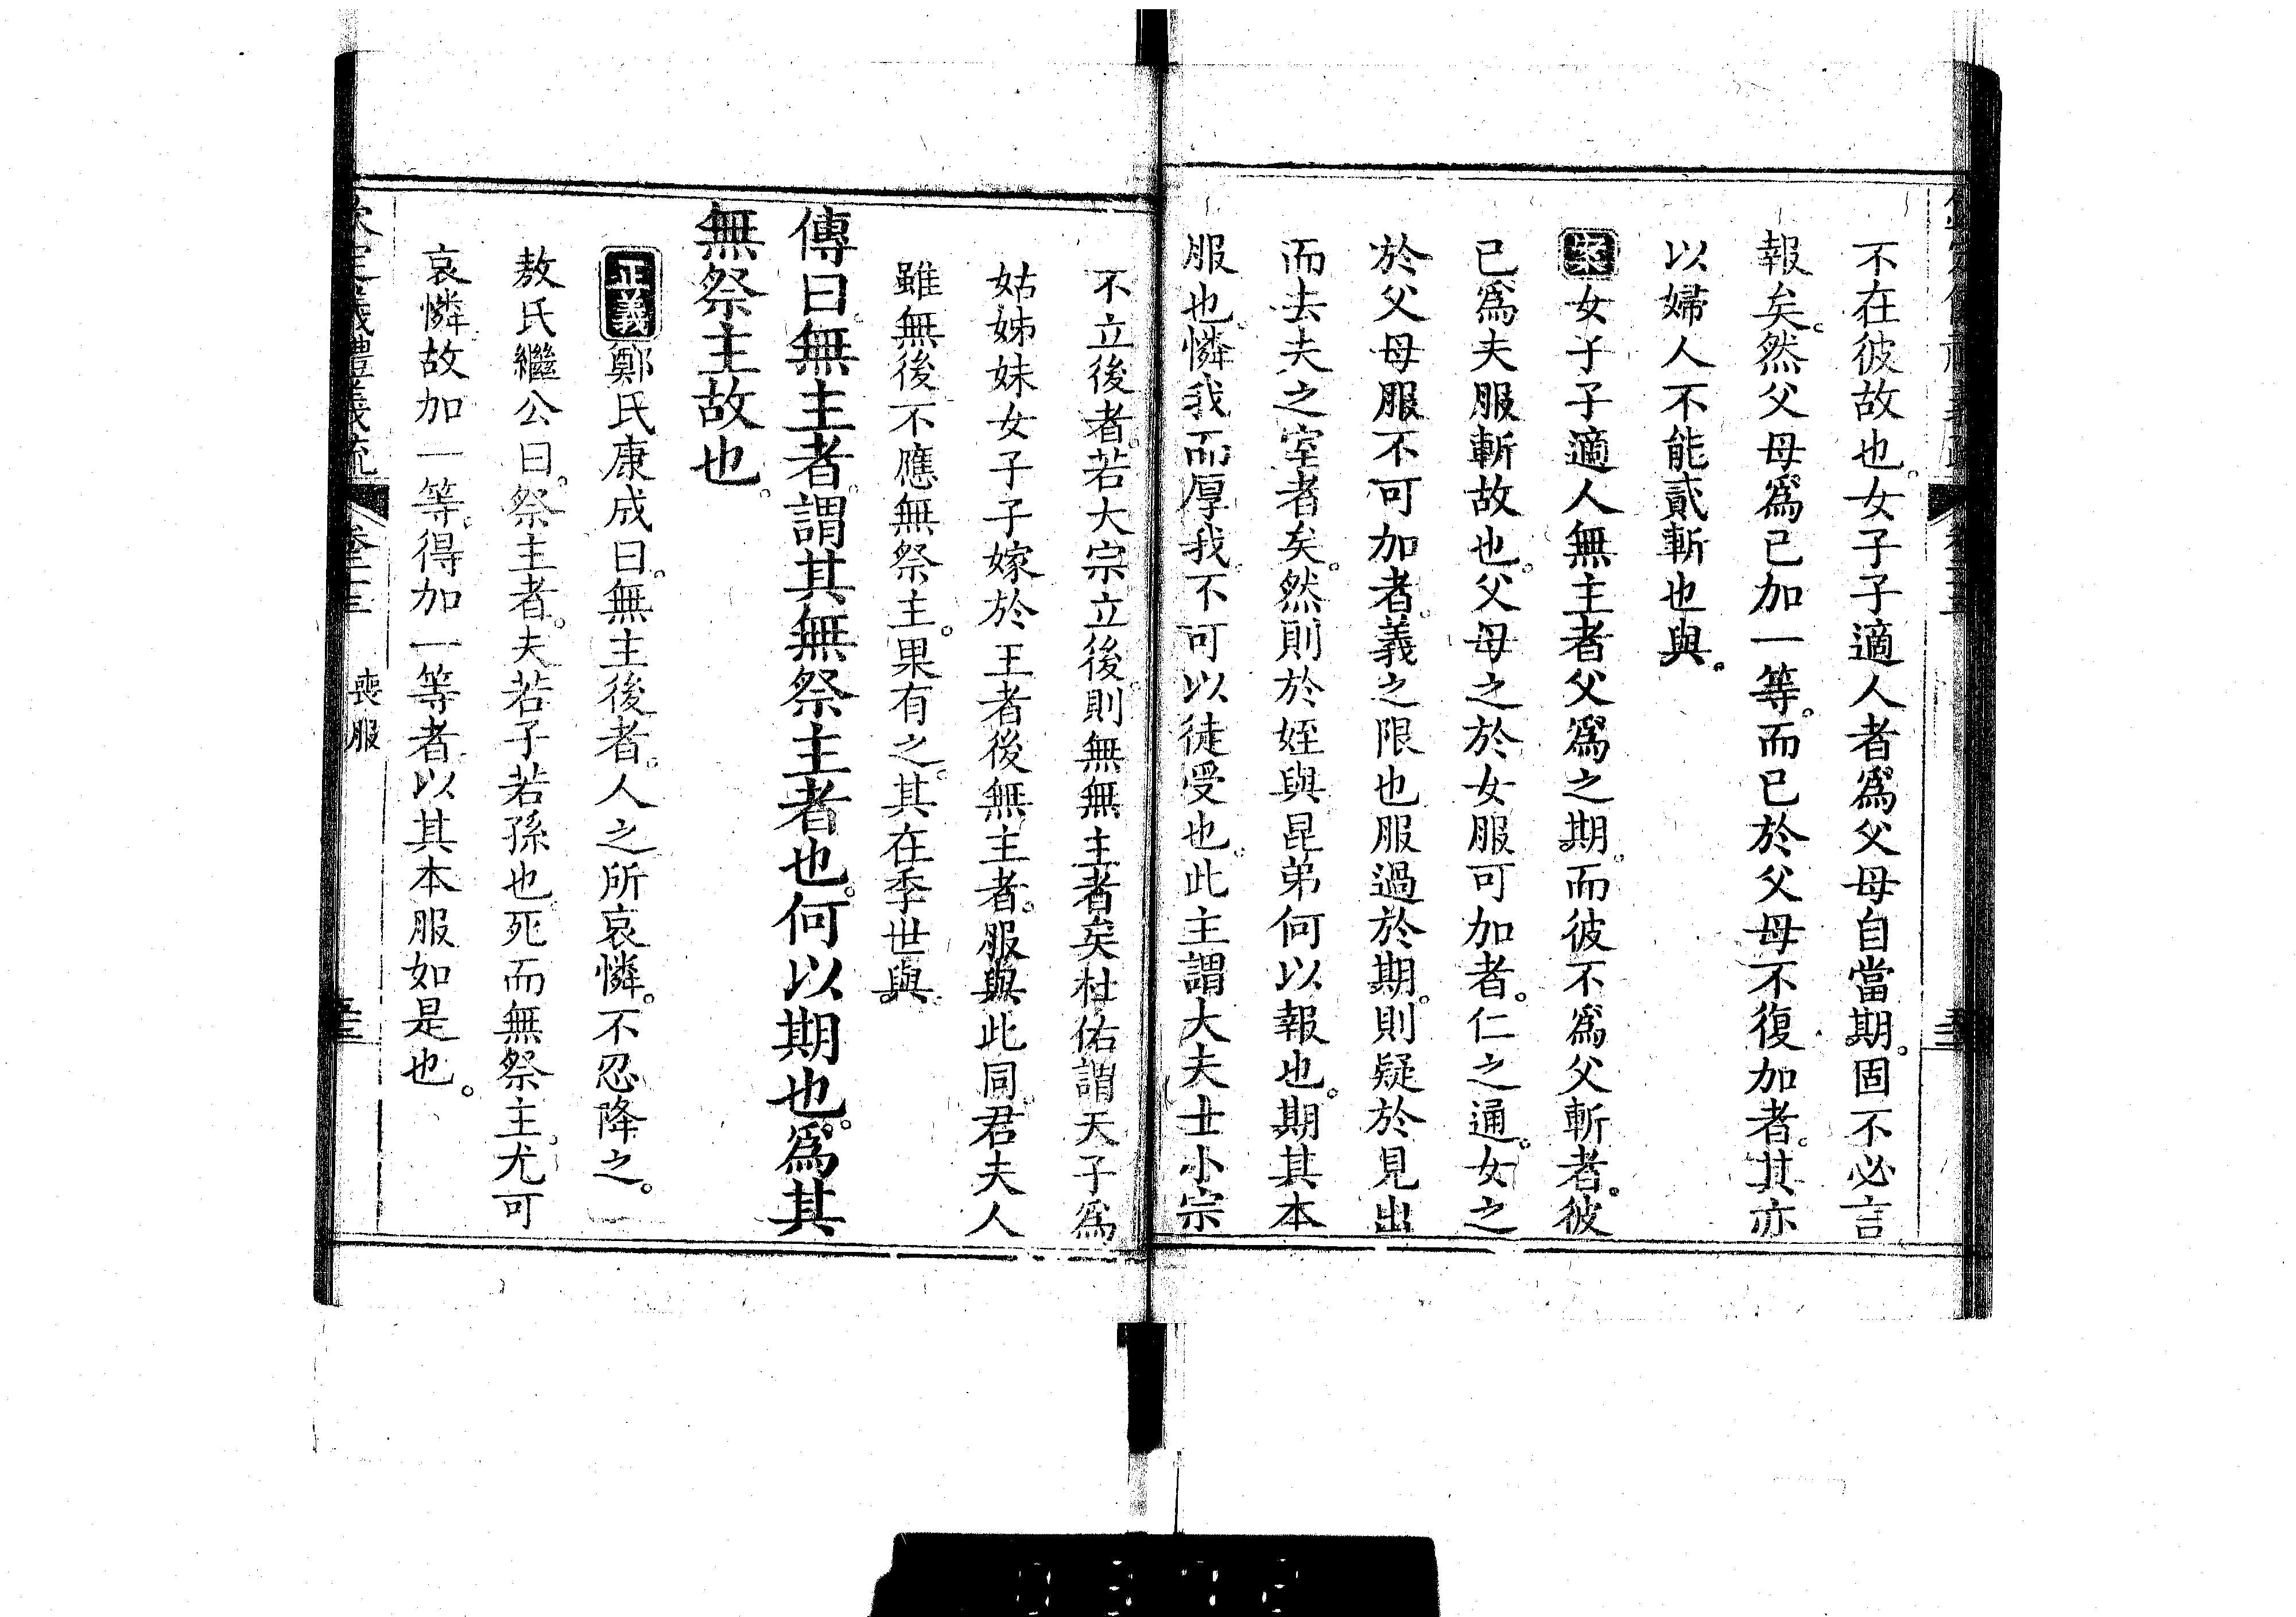 不在彼故也。女子子適人者。爲父母自當期。固不必言
報矣。然父母爲已加一等。而已於父母不復加者。其亦
以婦人不能貳斬也與。
案女子子適人無主者。父爲之期。而彼不爲父斬者。彼
已爲夫服斬故也。父母之於女服可加者。仁之通。女之
於父母服不可加者。義之限也。服過於期。則疑於見出
而去夫之室者矣。然則於姪與昆弟何以報也。期其本
服也。憐我而厚我。不可以徒受也。此主謂大夫士小宗
不立後者。若大宗立後。則無無主者矣。杜佑謂天子爲
姑姊妹女子子嫁於王者後無主者。服與此同。君夫人
雖無後。不應無祭主。果有之。其在季世與。
傳曰。無主者。謂其無祭主者也。何以期也。爲其
無祭主故也。
正義鄭氏康成曰。無主後者。人之所哀憐。不忍降之。
敖氏繼公曰。祭主者。夫若子若孫也。死而無祭主。尤可
哀憐。故加一等。得加一等者。以其本服如是也。
欽定儀禮義疏
喪服